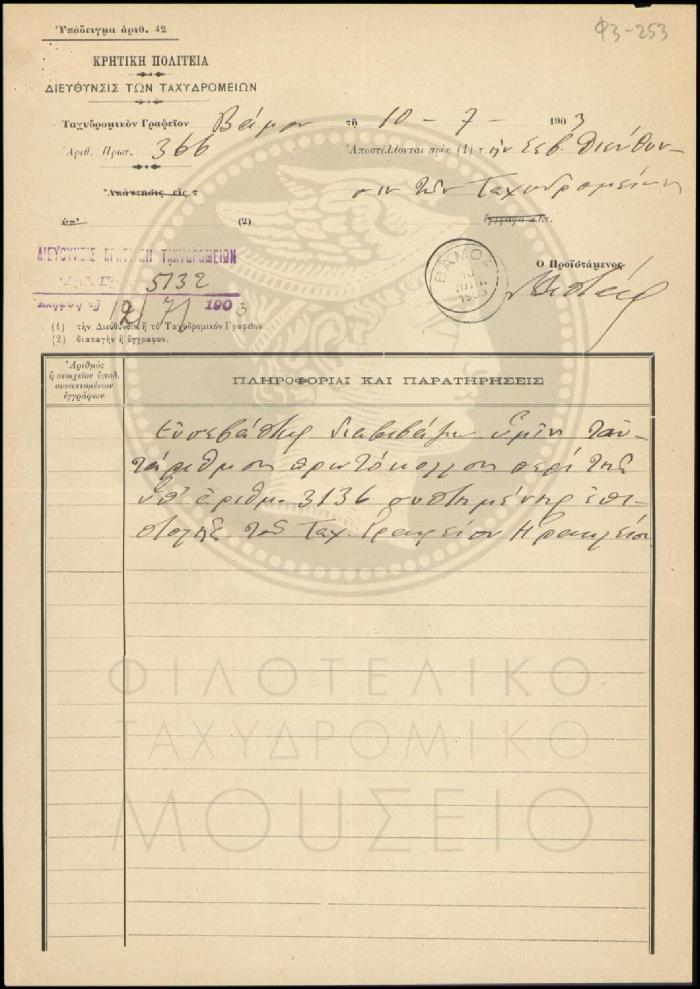 Ὑπόδειγμα ἀριθ. 42
Φ3-253
ΚΡΗΤΙΚΗ ΠΟΛΙΤΕΙΑ
ΔΙΕΥΘΥΝΣΙΣ ΤΩΝ ΤΑΧΥΔΡΟΜΕΙΩΝ
Ταχυδρομικὸν Γραφεῖον Βάμου τῇ 10-7-1903
Ἀριθ. Πρωτ. 366 Ἀποστέλλονται πρὸς (1) τὴν Σεβ. Διεύθυν-
Ἀπάντησις εἰς τ σιν τῶν Ταχυδρομείων
ὑπ' (2) ἔγγραφα
ΔΙΕΥΘΥΝΣΙΣ ΤΑΧΥΔΡΟΜΕΙΩΝ
5132
12/7/1903
ΒΑΜΟΣ
10
Ὁ Προϊστάμενος
(1) τὴν Διεύθυνσιν ἢ τὸ Ταχυδρομικὸν Γραφεῖον
(2) διαταγὴν ἢ ἔγγραφον.
Ἀριθμὸς
ἢ στοιχεῖον ὑποδ.
συναπτομένων
ἐγγράφων
ΠΛΗΡΟΦΟΡΙΑΙ ΚΑΙ ΠΑΡΑΤΗΡΗΣΕΙΣ
Εὐσεβάστως διαβιβάζω ὑμῖν ταὐ-
τάριθμον πρωτόκολλον περὶ τῆς
ὑπ' ἀριθμ. 3136 συστημένης ἐπι-
στολῆς τοῦ Ταχ. Γραφείου Ηρακλείου
ΦΙΛΟΤΕΛΙΚΟ
ΤΑΧΥΔΡΟΜΙΚΟ
ΜΟΥΣΕΙΟ